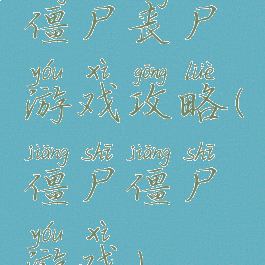 僵尸丧尸
yóu xì gōng lüè
游戏攻略(
jiāng shī jiāng shī
僵尸僵尸
yóu xì
游戏)